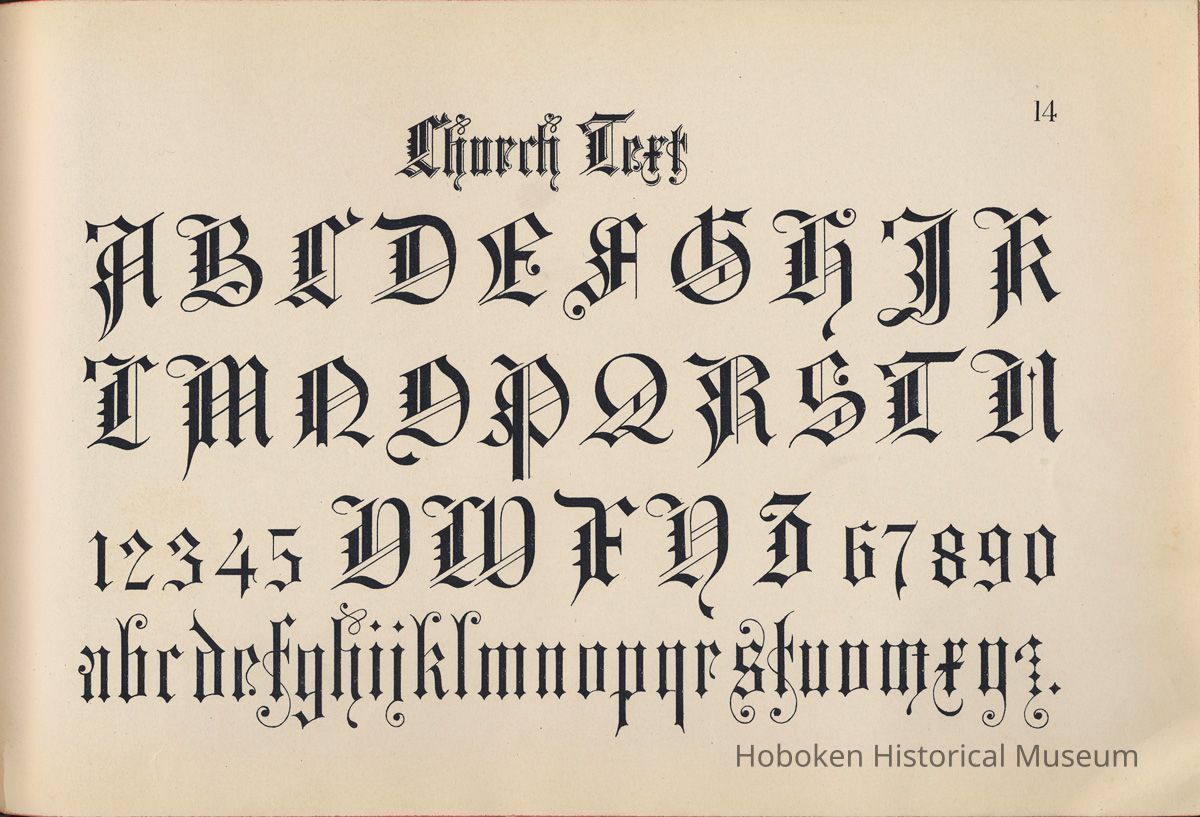 14
Church Text
A B C D E F G H J K
L M N O P Q R S T U
1 2 3 4 5 V W X Y Z 6 7 8 9 0
a b c d e f g h i j k l m n o p q r s t u v w x y z .
Hoboken Historical Museum